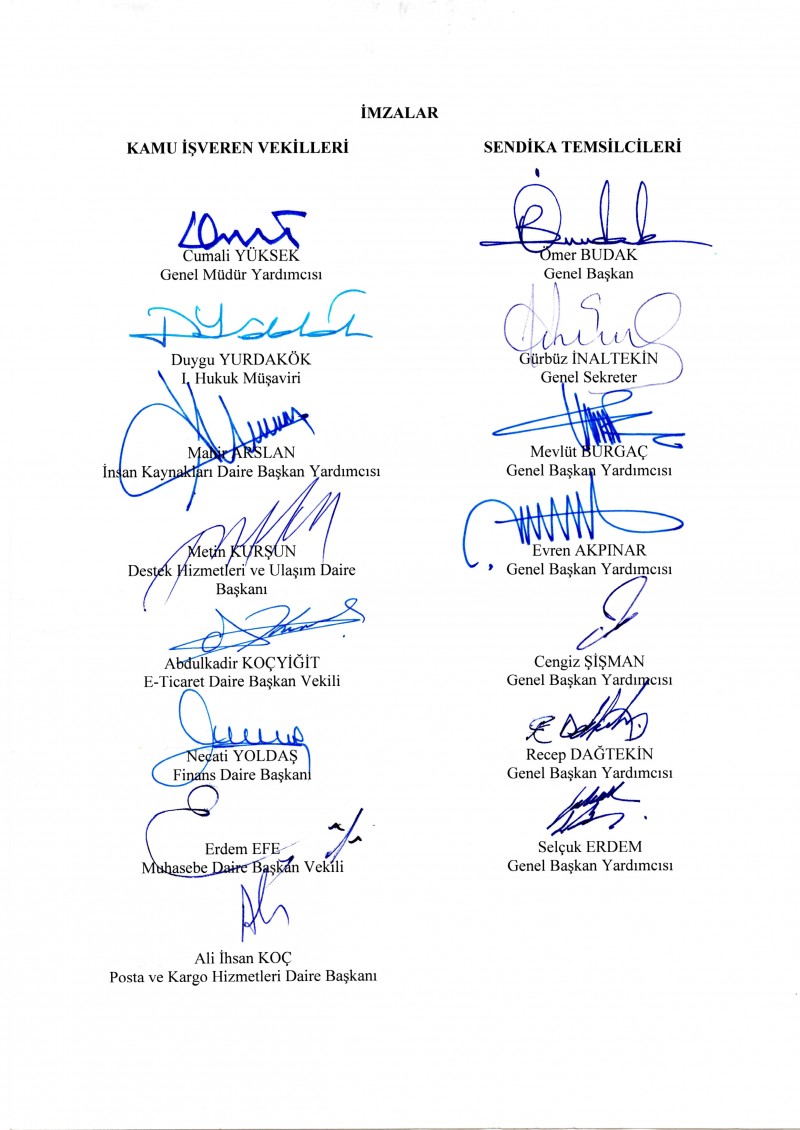 İMZALAR
KAMU İŞVEREN VEKİLLERİ
Cumali YÜKSEK
Genel Müdür Yardımcısı
Duygu YURDAKÖK
I. Hukuk Müşaviri
Mahir ARSLAN
İnsan Kaynakları Daire Başkan Yardımcısı
Metin KURŞUN
Destek Hizmetleri ve Ulaşım Daire
Başkanı
Abdulkadir KOÇYİĞİT
E-Ticaret Daire Başkan Vekili
Necati YOLDAŞ
Finans Daire Başkanı
Erdem EFE
Muhasebe Daire Başkan Vekili
Ali İhsan KOÇ
Posta ve Kargo Hizmetleri Daire Başkanı
SENDİKA TEMSİLCİLERİ
Budak
Ömer BUDAK
Genel Başkan
Gürbüz İNALTEKİN
Genel Sekreter
Mevlüt BURGAÇ
Genel Başkan Yardımcısı
Evren AKPINAR
Genel Başkan Yardımcısı
Cengiz ŞİŞMAN
Genel Başkan Yardımcısı
Recep DAĞTEKİN
Genel Başkan Yardımcısı
Selçuk ERDEM
Genel Başkan Yardımcısı